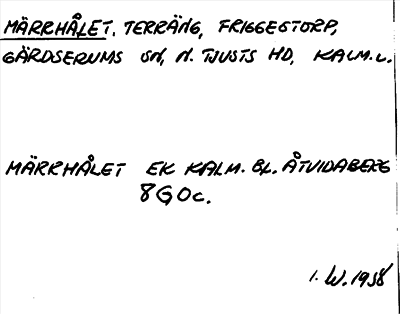 MÄRRHÅLET, TERRÄNG, FRIGGESTORP,
GÄRDSERUMS SN, N. TJUSTS HD, KALM.L.
MÄRRHÅLET EK KALM. BL. ÅTVIDABERG
8G0c.
I. W. 1958